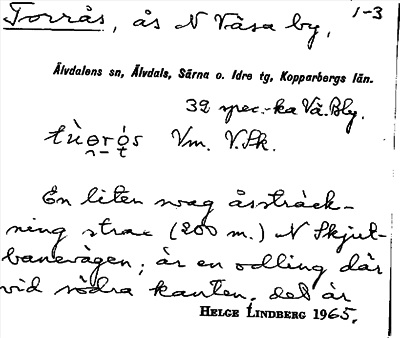 Torrås, ås N Våsa by, 1-3
Älvdalens sn, Älvdals, Särna o. Idre tg, Kopparbergs län.
32 spec.-ka Vå. Bly.
Vm. V.Sk.
En liten svag åssträck-
ning strax (200 m.) N Skjut-
banevägen; är en odling där
vid södra kanten. det är
HELGE LINDBERG 1965.